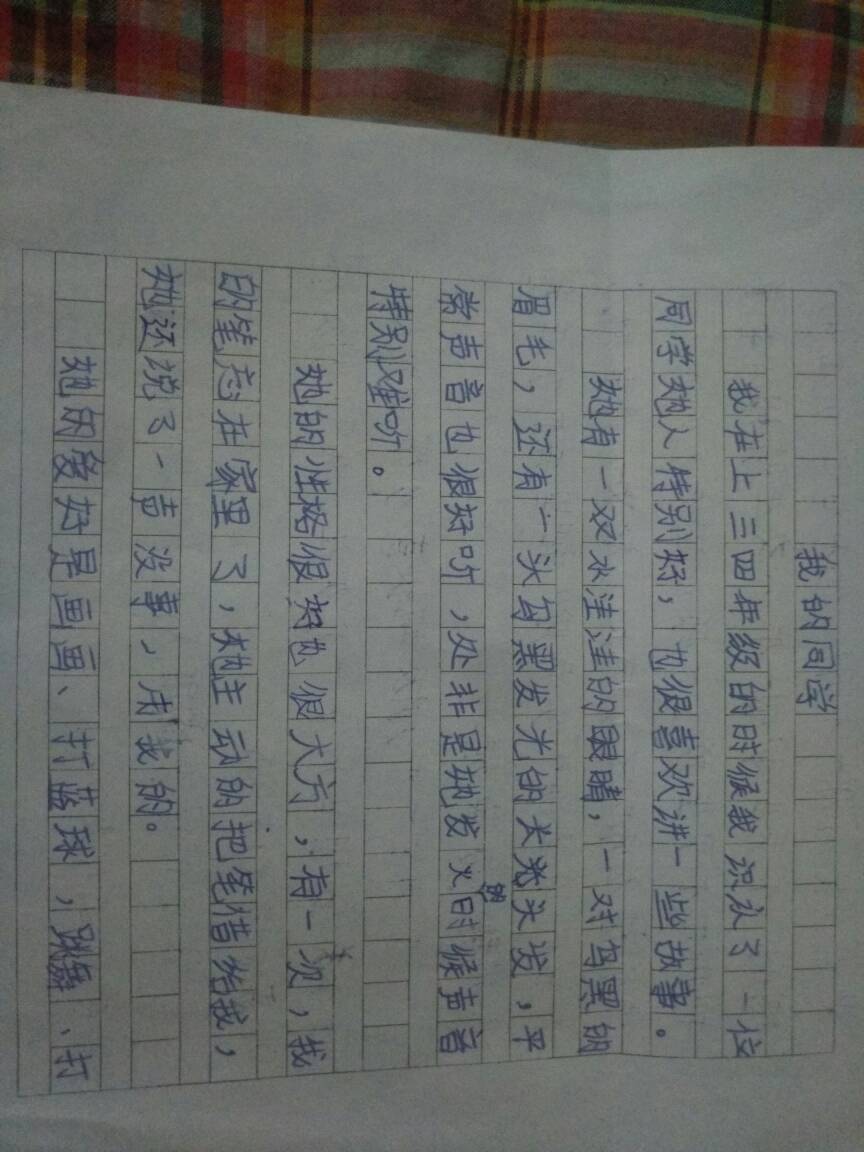 我的同学
我在上三四年级的时候我识认了一位
同学她人特别好，也很喜欢讲一些故事。
她有一双水洼洼的眼睛，一对乌黑的
眉毛，还有一头乌黑发光的长头发，平
常声音也很好听，处非是她发火的时候声音
特别难听。
她的性格很好也很大方，有一次，我
的笔忘在家里了，她主动的把笔借给我，
她还说了一声没事，用我的。
她的爱好是画画、打蓝球，跳舞、打